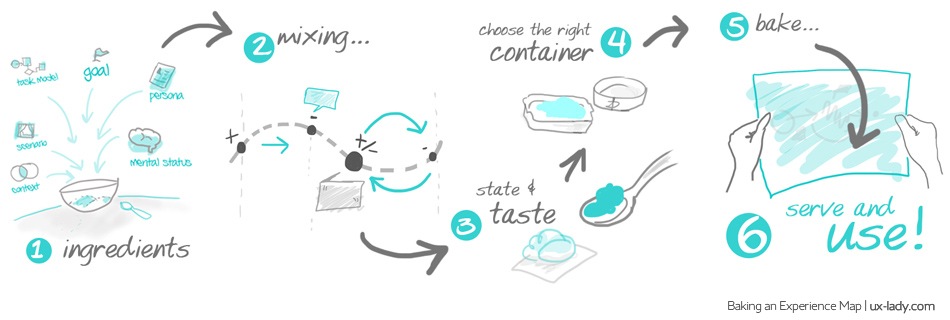 task model
goal
persona
scenario
mental status
context
1 ingredients
2 mixing...
+
-
+/-
-
3 state &
taste
choose the right
container 4
5 bake...
6 serve and
use!
Baking an Experience Map | ux-lady.com